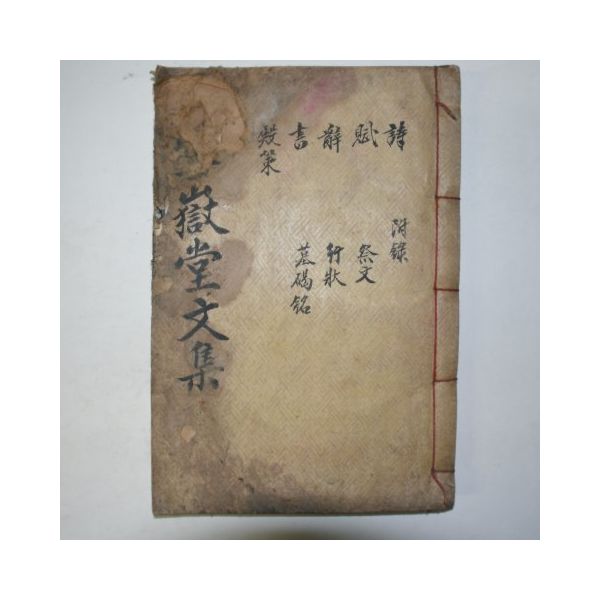 詩
賦
辭
書
殿策
附錄
祭文
行狀
墓碣銘
嶽堂文集